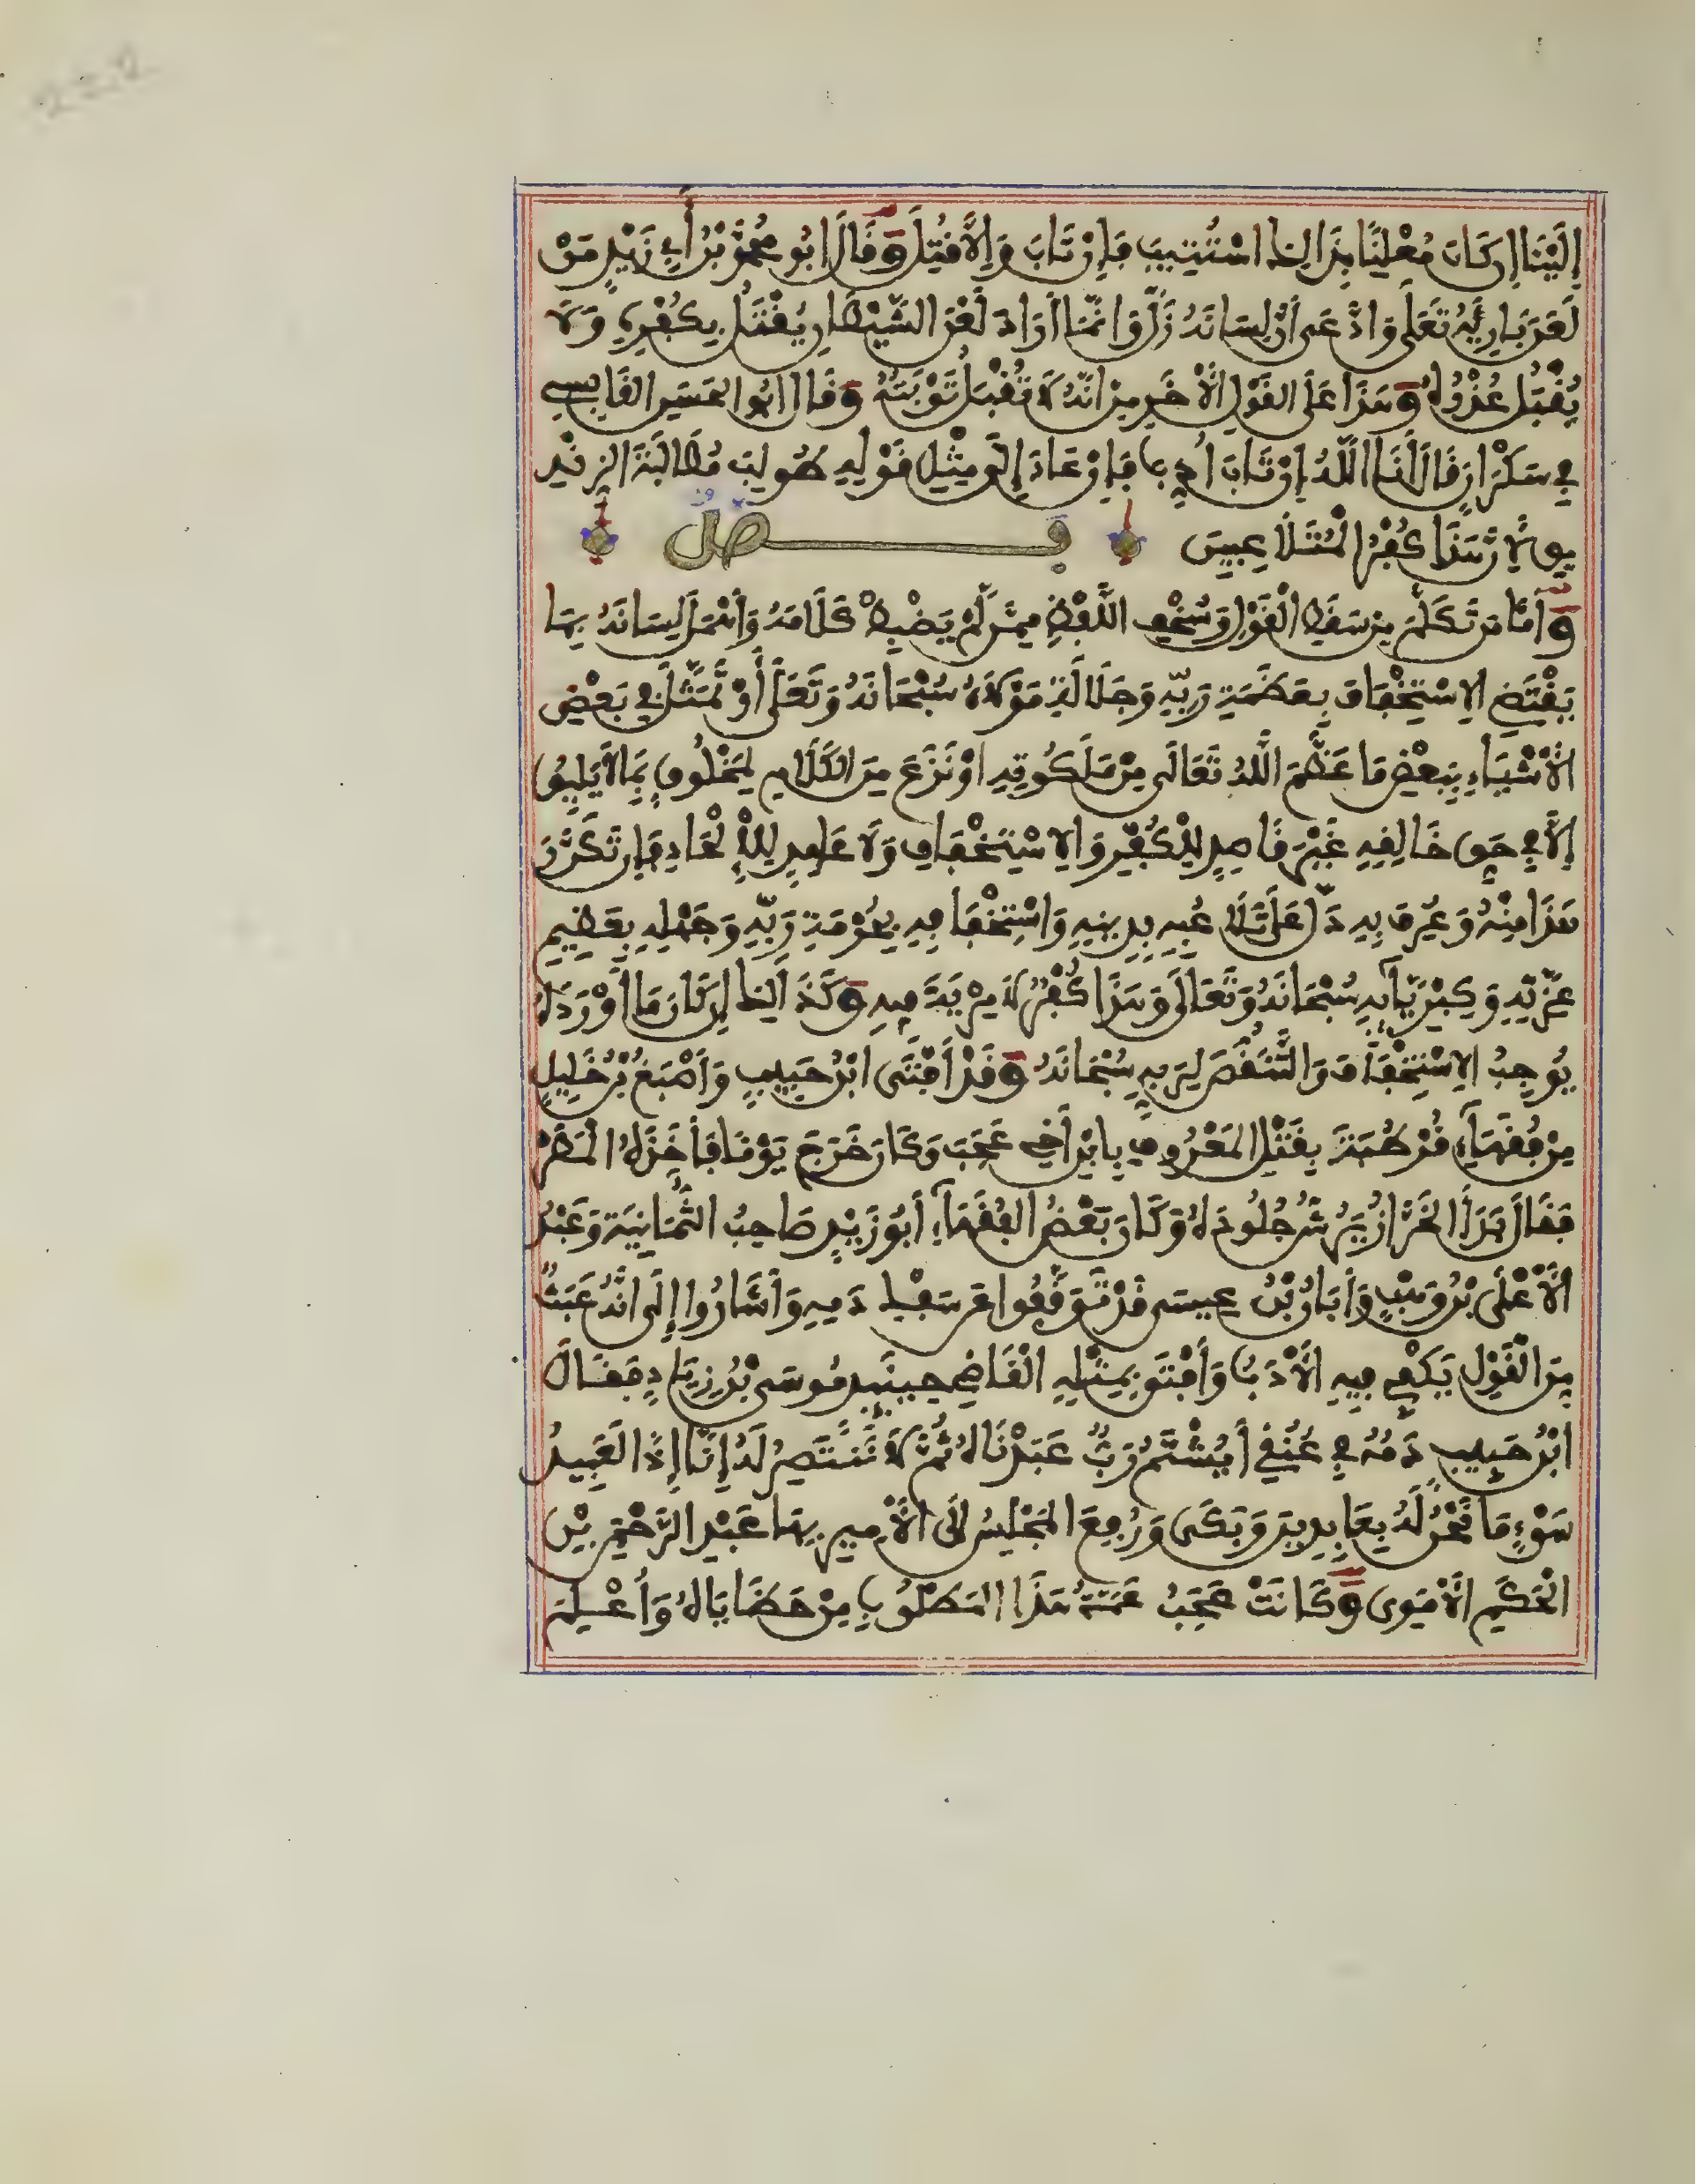 إِلَيْنَا إِن كَانَ مُعْلِنًا بِذَالِكَ اسْتُتِيبَ فَإِنْ تَابَ وَإِلَّا قُتِلَ وَقَالَ ابُو مُحَمَّدِ بْنُ أَبِي زَيْدٍ مَنْ
لَعَنَ بَارِئَهُ تَعَلَى وَادَّعَى أَنَّ لِسَانَهُ زَلَّ وَانَّمَا أَرَادَ لَعْنَ الشَّيْطَانِ يُقْتَلُ بِكُفْرِهِ وَلَا
يُقْبَلُ عُذْرُهُ وَهَذَا عَلَى القَوْلِ الْأَخَرِ مِنَ انَّهُ لَا تُقْبَلُ تَوْبَتُهُ وَقَالَ ابُو الحَسَنِ القَابِسِي
فِي سَكْرَانٍ قَالَ أَنَا اللَّهُ إِنْ تَابَ أُدِّبَ فَإِنْ عَادَ إِلَى مِثْلِ قَوْلِهِ طُولِبَ مُطَالَبَةَ الزِنْدِ
يقِ لِأَنَّ هَذَا كُفْرُ الْمُتَلَاعِبِينَ فصل
وَأَمَّا مَن تَكَلَّمَ مِن سَقَطِ الْقَوْلِ وَسُخْفِ اللَّفْظِ مِمَّن لَّمْ يَضْبِطْ كَلَامَهُ وَأَهْمَلَ لِسَانَهُ بِمَا
يَقْتَضِي الِاسْتِخْفَافَ بِعَظَمَةِ رَبِّهِ وَجَلَالَةِ مَوْلَاهُ سُبْحَانَهُ وَتَعَلَى أَوْ تَمَثَّلَ فِي بَعْضِ
الْأَشْيَاءِ بِبَعْضِ مَا عَظَّمَ اللَّهُ تَعَالَى مِنْ مَلَكُوتِهِ اوْ نَزَعَ مِنَ الكَلَامِ لِمَخْلُوقٍ بِمَا لَا يَلِيقُ
إِلَّا فِي حَقِّ خَالِقِهِ غَيْرَ قَاصِدٍ لِلْكُفْرِ وَالِاسْتِخْفَافِ وَلَا عَامِدٍ لِلْإِلْحَادِ فَإِن تَكَرَّرَ
هَذَا مِنْهُ وَعُرِفَ بِهِ دَلَّ عَلَى تَلَاعُبِهِ بِدِينِهِ وَاسْتِخْفَافِهِ بِحُرْمَةِ رَبِّهِ وَجَهْلِهِ بِعَظِيمِ
عِزَّتِهِ وَكِبْرِيَائِهِ سُبْحَانَهُ وَتَعَالَى وَهَذَا كُفْرٌ لَا مِرْيَةَ فِيهِ وَكَذَالِكَ إِن كَانَ مَا أَوْرَدَهُ
يُوجِبُ الِاسْتِخْفَافَ وَالتَّنَقُّصَ لِرَبِّهِ سُبْحَانَهُ وَقَدْ أَفْتَى ابْنُ حَبِيبٍ وَأَصْبَغُ بْنُ خَلِيلٍ
مِنْ فُقَهَاءِ قُرْطُبَةَ بِقَتْلِ المَعْرُوفِ بِابْنِ أَخِي عَجَبَ وَكَانَ خَرَجَ يَوْمًا فَأَخَذَهُ الْمَطَرُ
فَقَالَ بَدَأَ الخَرَّازُ يَرُشُّ جُلُودَهُ وَكَانَ بَعْضُ الفُقَهَاءِ أَبُو زَيْدٍ صَاحِبُ الثَّمَانِيَةِ وَعَبْدُ
الْأَعْلَى بْنُ وَهْبٍ وَأَبَانُ بْنُ عِيسَى قَدْ تَوَقَّفُوا عَن سَفْكِ دَمِهِ وَأَشَارُوا إِلَى انَّهُ عَبَثٌ
مِنَ الْقَوْلِ يَكْفِي فِيهِ الْأَدَبُ وَأَفْتَى بِمِثْلِهِ الْقَاضِي حِينَئِذٍ مُوسَى بْنُ زِيَادٍ فَقَالَ
ابْنُ حَبِيبٍ دَمُهُ فِي عُنُقِي أَيُشْتَمُ رَبٌّ عَبَدْنَاهُ ثُمَّ لَا نَنتَصِرُ لَهُ إِنَّا إِذًا لَعَبِيدُ
سَوْءٍ مَا نَحْنُ لَهُ بِعَابِدِينَ وَبَكَى وَرُفِعَ المَجْلِسُ إِلَى الْأَمِيرِ بِهَا عَبْدِ الرَّحْمَنِ بْنِ
الْحَكَمِ الْأُمَوِى وَكَانَتْ عَجَبُ عَمَّةُ هَذَا المَطْلُوبِ مِنْ حَظَايَاهُ وَأُعْلِمَ